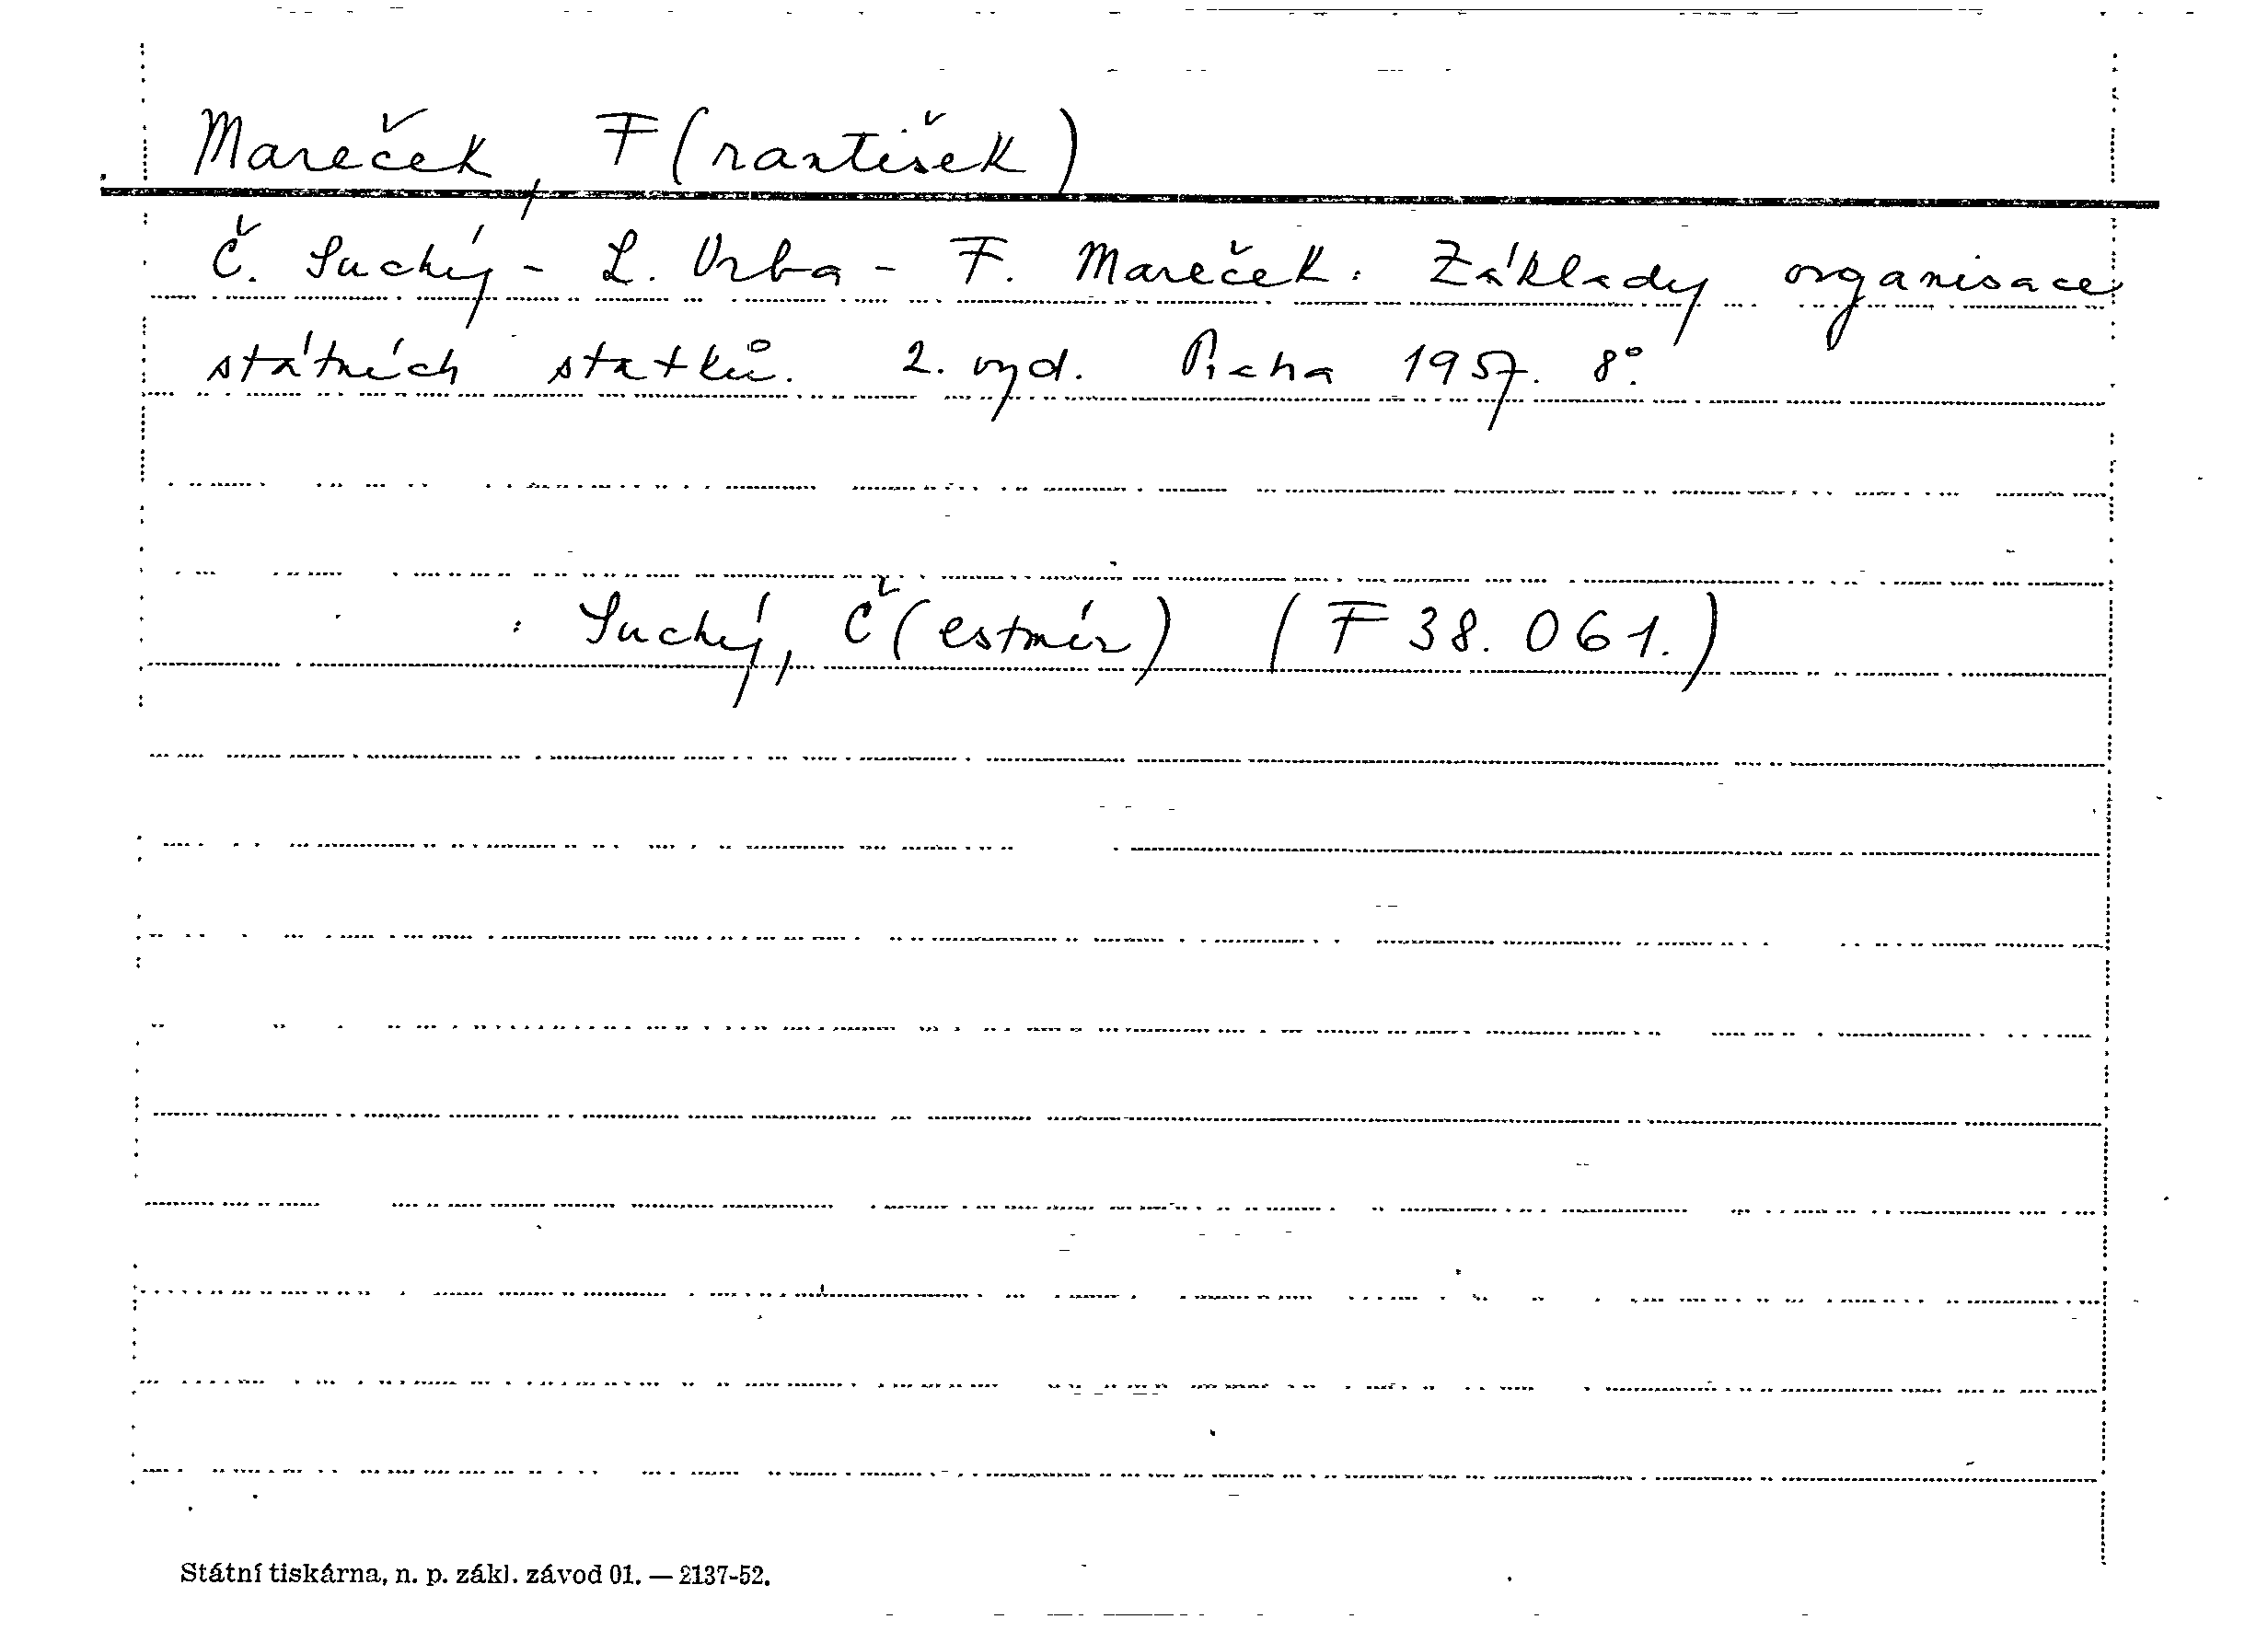 Mareček, F(rantišek)
Č. Suchý - L. Vrba - F. Mareček: Základy organisace
státních statků. 2. vyd. Praha 1957. 8°.
: Suchý, Č(estmír) (F 38.061.)
Státní tiskárna, n. p. zákl. závod 01. — 2137-52.